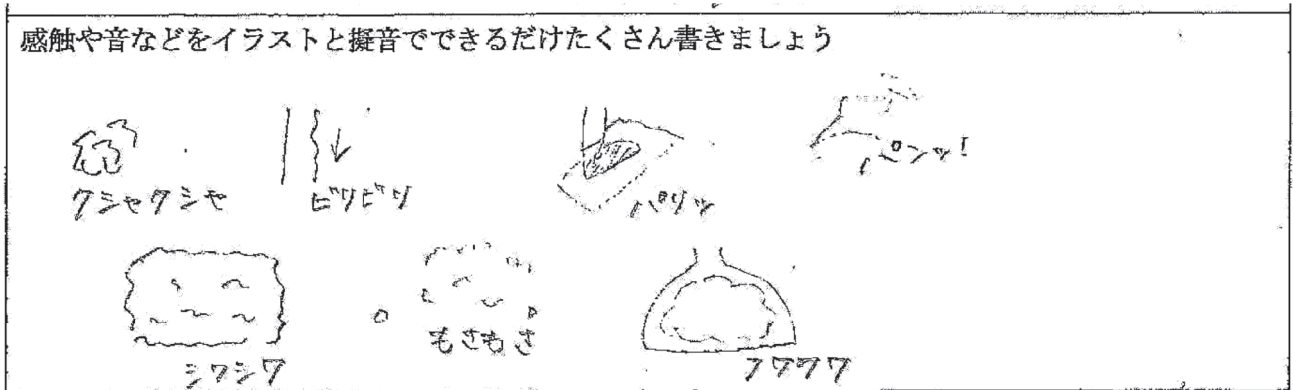 感触や音などをイラストと擬音でできるだけたくさん書きましょう
クシャクシャ
ビリビリ
パリッ
パンッ!
シワシワ
もさもさ
フワフワ